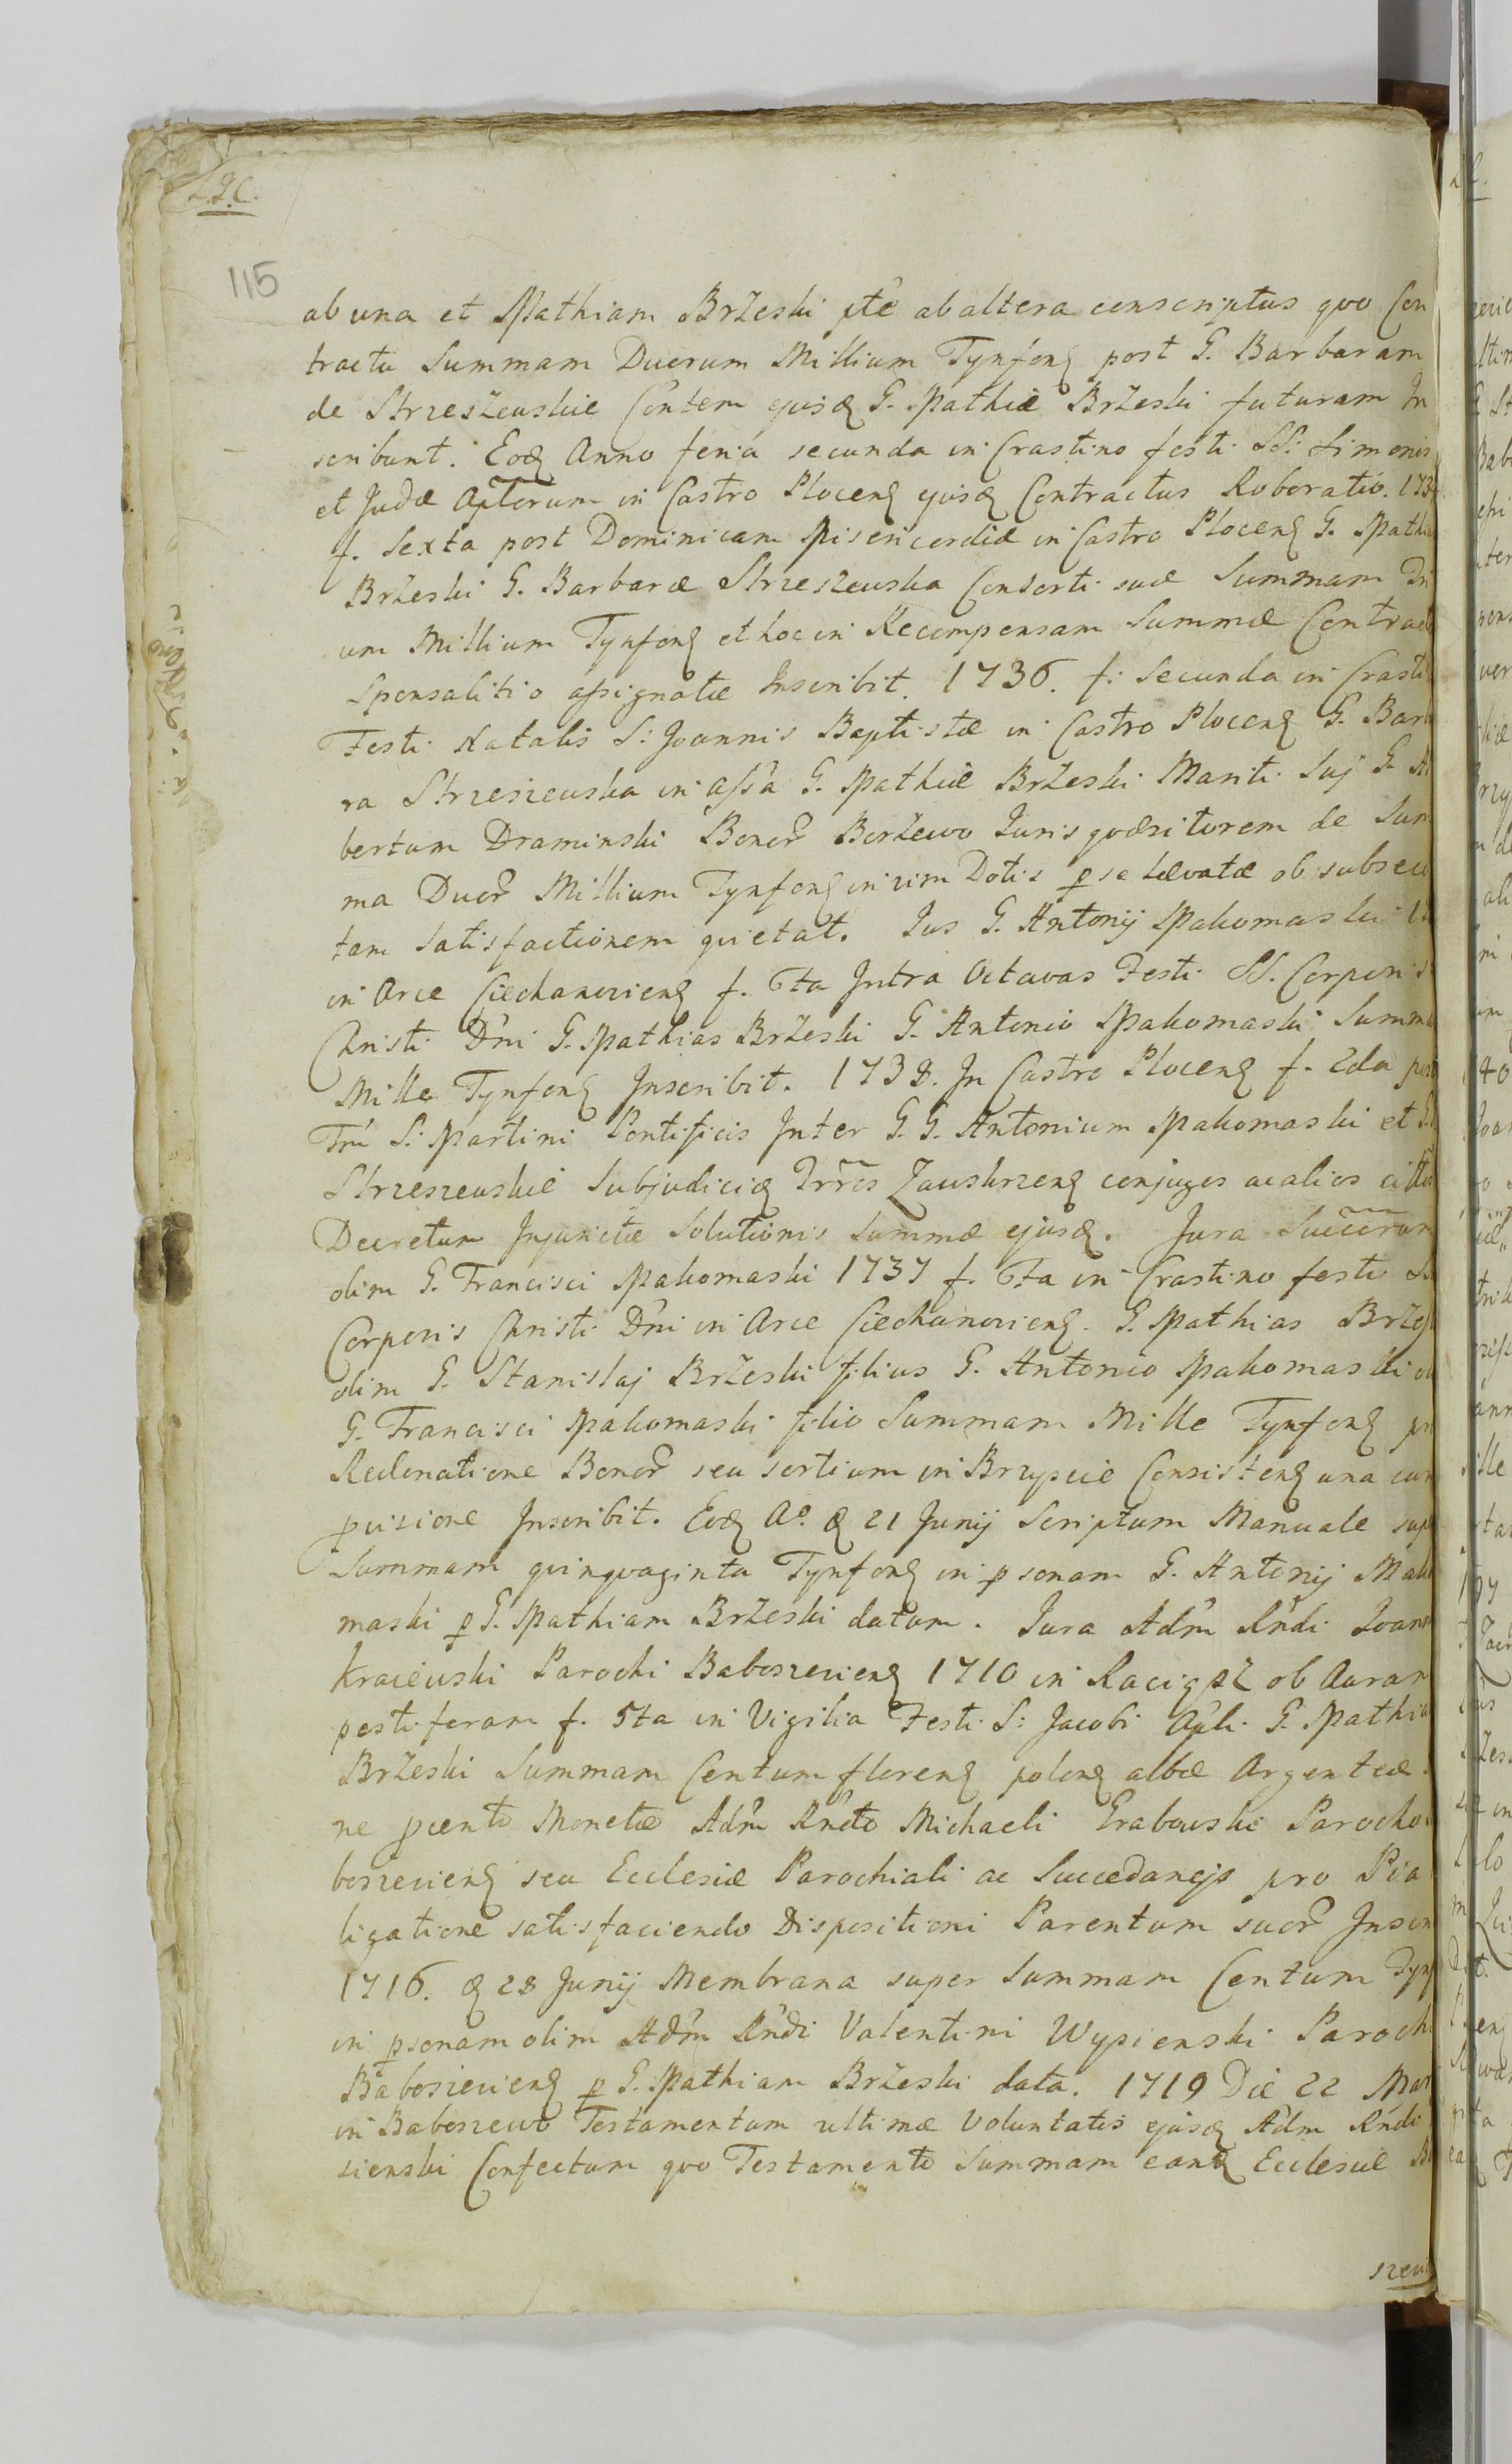 115
ab una et Mathiam Brżeski pte ab altera conscriptus quo Con
tractu Summam Duorum Millium Tynfonꝝ post G. Barbaram
de Strzeszewskie Contem ejusꝗ G. Mathiæ Brżeski futuram In
scribunt. Eodꝗ Anno feria secunda in Crastino festi SS. Simonis
et Judæ Aptorum in Castro Plocenꝝ ejusꝗ Contractus Roboratio. 173
f. Sexta post Dominicam Misericordiæ in Castro Plocenꝝ G. Mathi
Brżeski G. Barbaræ Strzeszewska Consorti suæ Summam
um Millium Tynfonꝝ et hoc in Recompensam Summæ Contract
Sponsalitio assignatæ Inscribit. 1736. f. Secunda in Crasti
Festi Natalis S. Joannis Baptistæ in Castro Plocenꝝ G. Barb
ra Strzeszewska in assa G. Mathiæ Brżeski Mariti Suj G.
bertum Draminski Bonor Borżewo Juris quæsitorem de Sum
ma Duor Millium Tynfonꝝ in vim Dotis p se Lævatæ ob subsecu
tam Satisfactionem quietat. Jus G. Antonij Makomaski
in Arce Ciechanoviensꝝ f. 6ta Intra Octavas Festi SS. Corporis
Christi Dni G. Mathias Brżeski G. Antonio Makomaski Summa
Mille Tynfonꝝ Inscribit. 1738. In Castro Plocenꝝ f. 2da post
Fru S. Martini Pontificis Inter G. G. Antonium Makomaski et
Strzeszewskie Subjudiciꝗ Trres Zawskrzenꝝ conjuges ac alios citto
Decretum Injunctæ Solutionis Summæ ejusꝗ. Jura Succrum
olim G. Francisci Makomaski 1737 f. 6ta in Crastino festi
Corporis Christi Dni in Arce Ciechanovienꝝ. G. Mathias Brżes
olim G. Stanislaj Brżeski filius G. Antonio Makomaski
G. Francisci Makomaski filio Summam Mille Tynfonꝝ
Reclinatione Bonor seu sortium in Brzyscie Consistenꝝ una cum
pvisione Inscribit. Eodꝗ Ao. ꝗ 21 Junij Scriptum Manuale sup
Summam quinquaginta Tynfonꝝ in psonam G. Antonij Mako
maski p G. Mathiam Brżeski datum. Jura Adm Rndi Joan
Kraiewski Parochi Baboszevienꝝ 1710 in Raciąż ob Auram
pestiferam f. 5ta in Vigilia Festi S. Jacobi Apli G. Mathia
Brżeski Summam Centum florenꝝ polonꝝ albæ Argenteæ
ne pcento Monetæ Adm Rndo Michaeli Grabowski Parocho
boszevienꝝ seu Ecclesiæ Parochiali ac Succedanejs pro Pia
ligatione satisfaciendo Dispositioni Parentum suor Inscri
1716. ꝗ 28 Junij Membrana super Summam Centum Tynf
in psonam olim Adm Rndi Valentini Wysienski Paroch
Baboszevienꝝ p G. Mathiam Brżeski data. 1719 Die 22 Mar
in Baboszewo Testamentum ultimæ Voluntatis ejusꝗ Adm Rndi
sienski Confectum quo Testamento Summam eandꝗ Ecclesiæ
szew